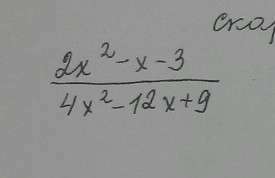 скар
2x² - x - 3
4x² - 12x + 9